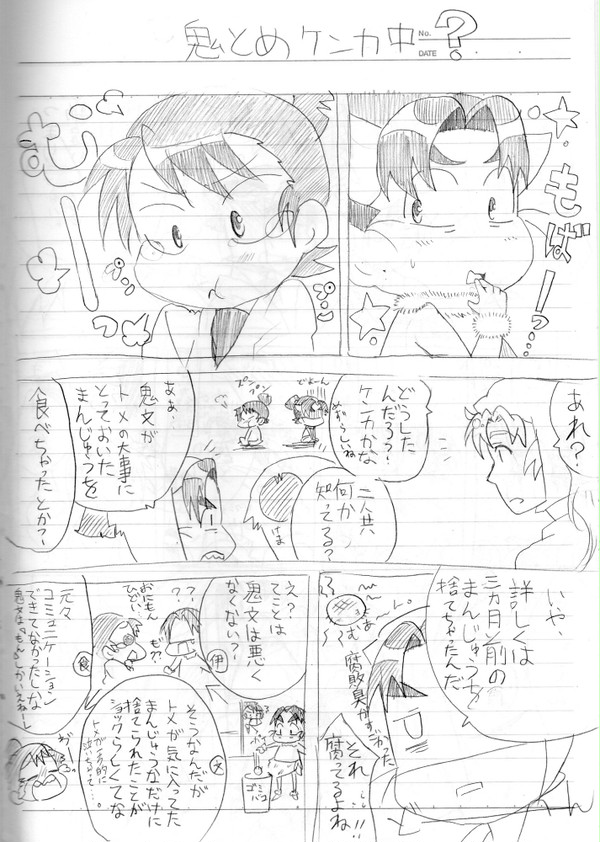 鬼とめケンカ中?
No.
DATE
もばーっ…
むーっ
あれ?
どうした
んだろう?
ケンカかな
めずらしいね
どよーん
プン
プン
二人共
何か
知ってる?
あぁ、
鬼文が
トメの大事に
とっておいた
まんじゅうを
食べちゃったとか?
いや、
詳しくは
三カ月前の
まんじゅうを
捨てちゃったんだ
あ〜ん。
む
腐敗臭がすごかった
それ
腐ってるよね!!
え??
てことは
鬼文は悪く
なくない?
伊
食
おにもん
ひどい
も??
?
そうなんだが
トメが気に入ってた
まんじゅうなだけに
捨てられたことが
ショックらしくてな
トメが一方的に
泣いちゃって…。
文
ゴミ
バコ
元々
コミュニケーション
できてなかったしな
鬼文は「もん」しかいえねーし